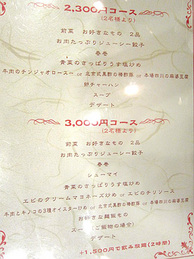 2,300円コース
(2名様より)
前菜 お好きなもの 2品
お肉たっぷりジューシー餃子
春巻
青菜のさっぱりうす塩いため
牛肉のチンジャオロース or 北京式黒酢の酢豚 or 本場四川の麻婆豆腐
卵チャーハン
スープ
デザート
3,000円コース
(2名様より)
前菜 お好きなもの 2品
お肉たっぷりジューシー餃子
春巻
シューマイ
青菜のさっぱりうす塩いため
エビのクリームマヨネーズ or エビのチリソース
or 北京式黒酢の酢豚 or 本場四川の麻婆豆腐
デザート
+1,500円で飲み放題(2時間)